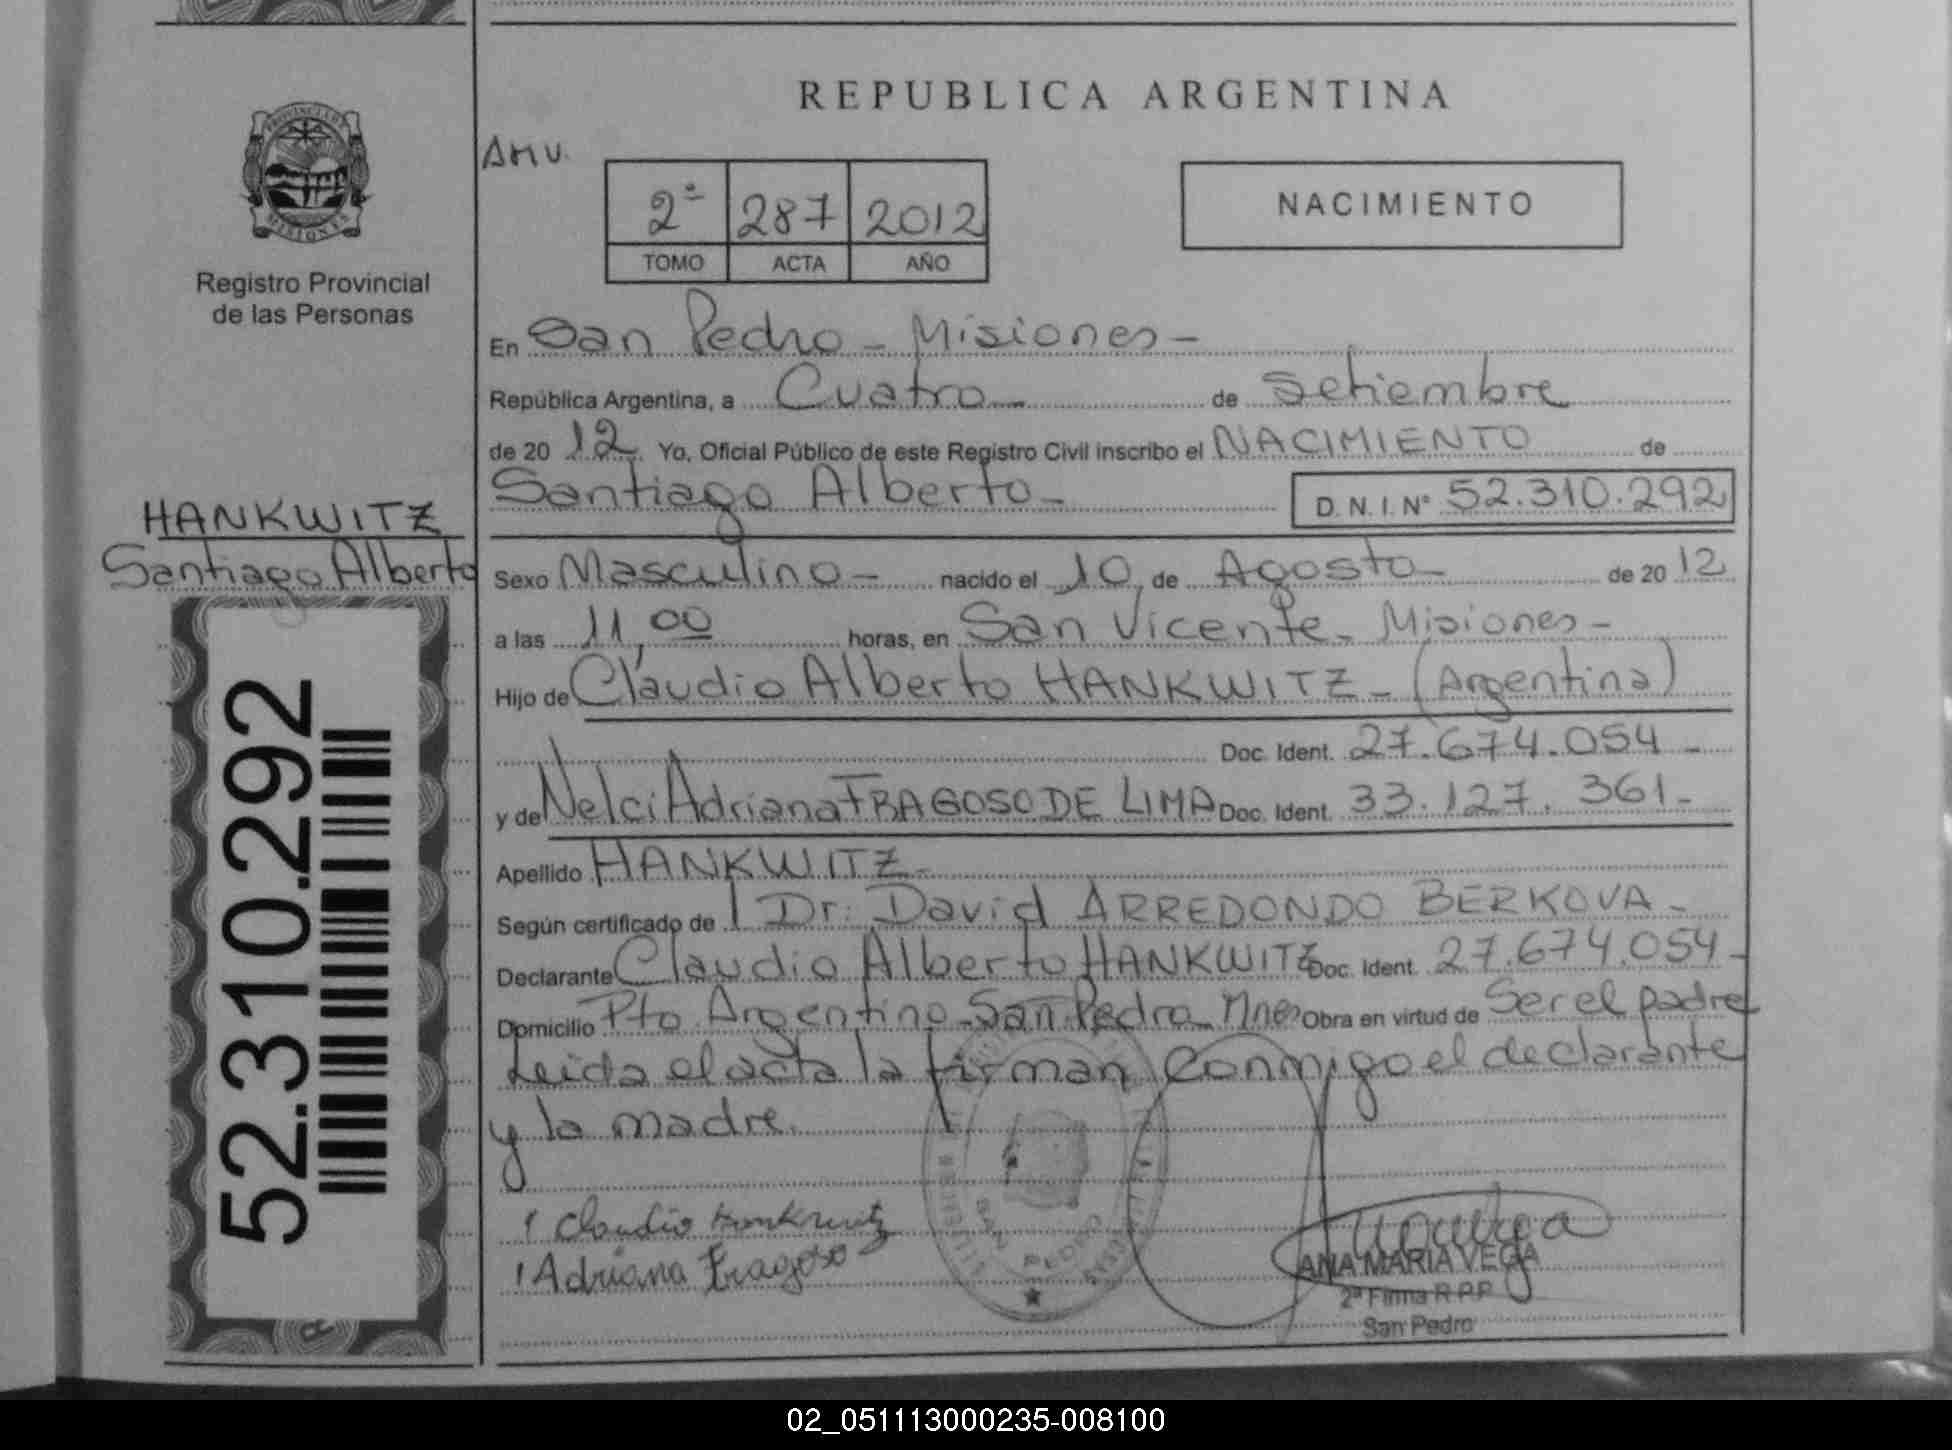 REPUBLICA ARGENTINA
AMV.
2ª 287 2012
TOMO ACTA AÑO
NACIMIENTO
PROVINCIA DE
MISIONES
Registro Provincial
de las Personas
En San Pedro - Misiones -
República Argentina, a Cuatro de Setiembre
de 20 12 Yo, Oficial Público de este Registro Civil inscribo el NACIMIENTO de
Santiago Alberto - D. N. I. Nº 52.310.292
HANKWITZ
Santiago Alberto
52.310.292
Sexo Masculino - nacido el 10 de Agosto - de 20 12
a las 11,00 horas, en San Vicente - Misiones -
Hijo de Claudio Alberto HANKWITZ - (Argentina)
Doc. Ident. 27.674.054 -
y de Nelci Adriana FRAGOSO DE LIMA Doc. Ident. 33.127.361 -
Apellido HANKWITZ -
Según certificado de Dr. David ARREDONDO BERKOVA -
Declarante Claudio Alberto HANKWITZ Doc. Ident. 27.674.054 -
Domicilio Pto Argentino - San Pedro - Mnes Obra en virtud de Ser el padre
Leida el acta la firman conmigo el declarante
y la madre.
Claudio Hankwitz
Adriana Fragoso
SAN PEDRO
ANA MARIA VEGA
2ª Firma R.P.P.
San Pedro
02_051113000235-008100